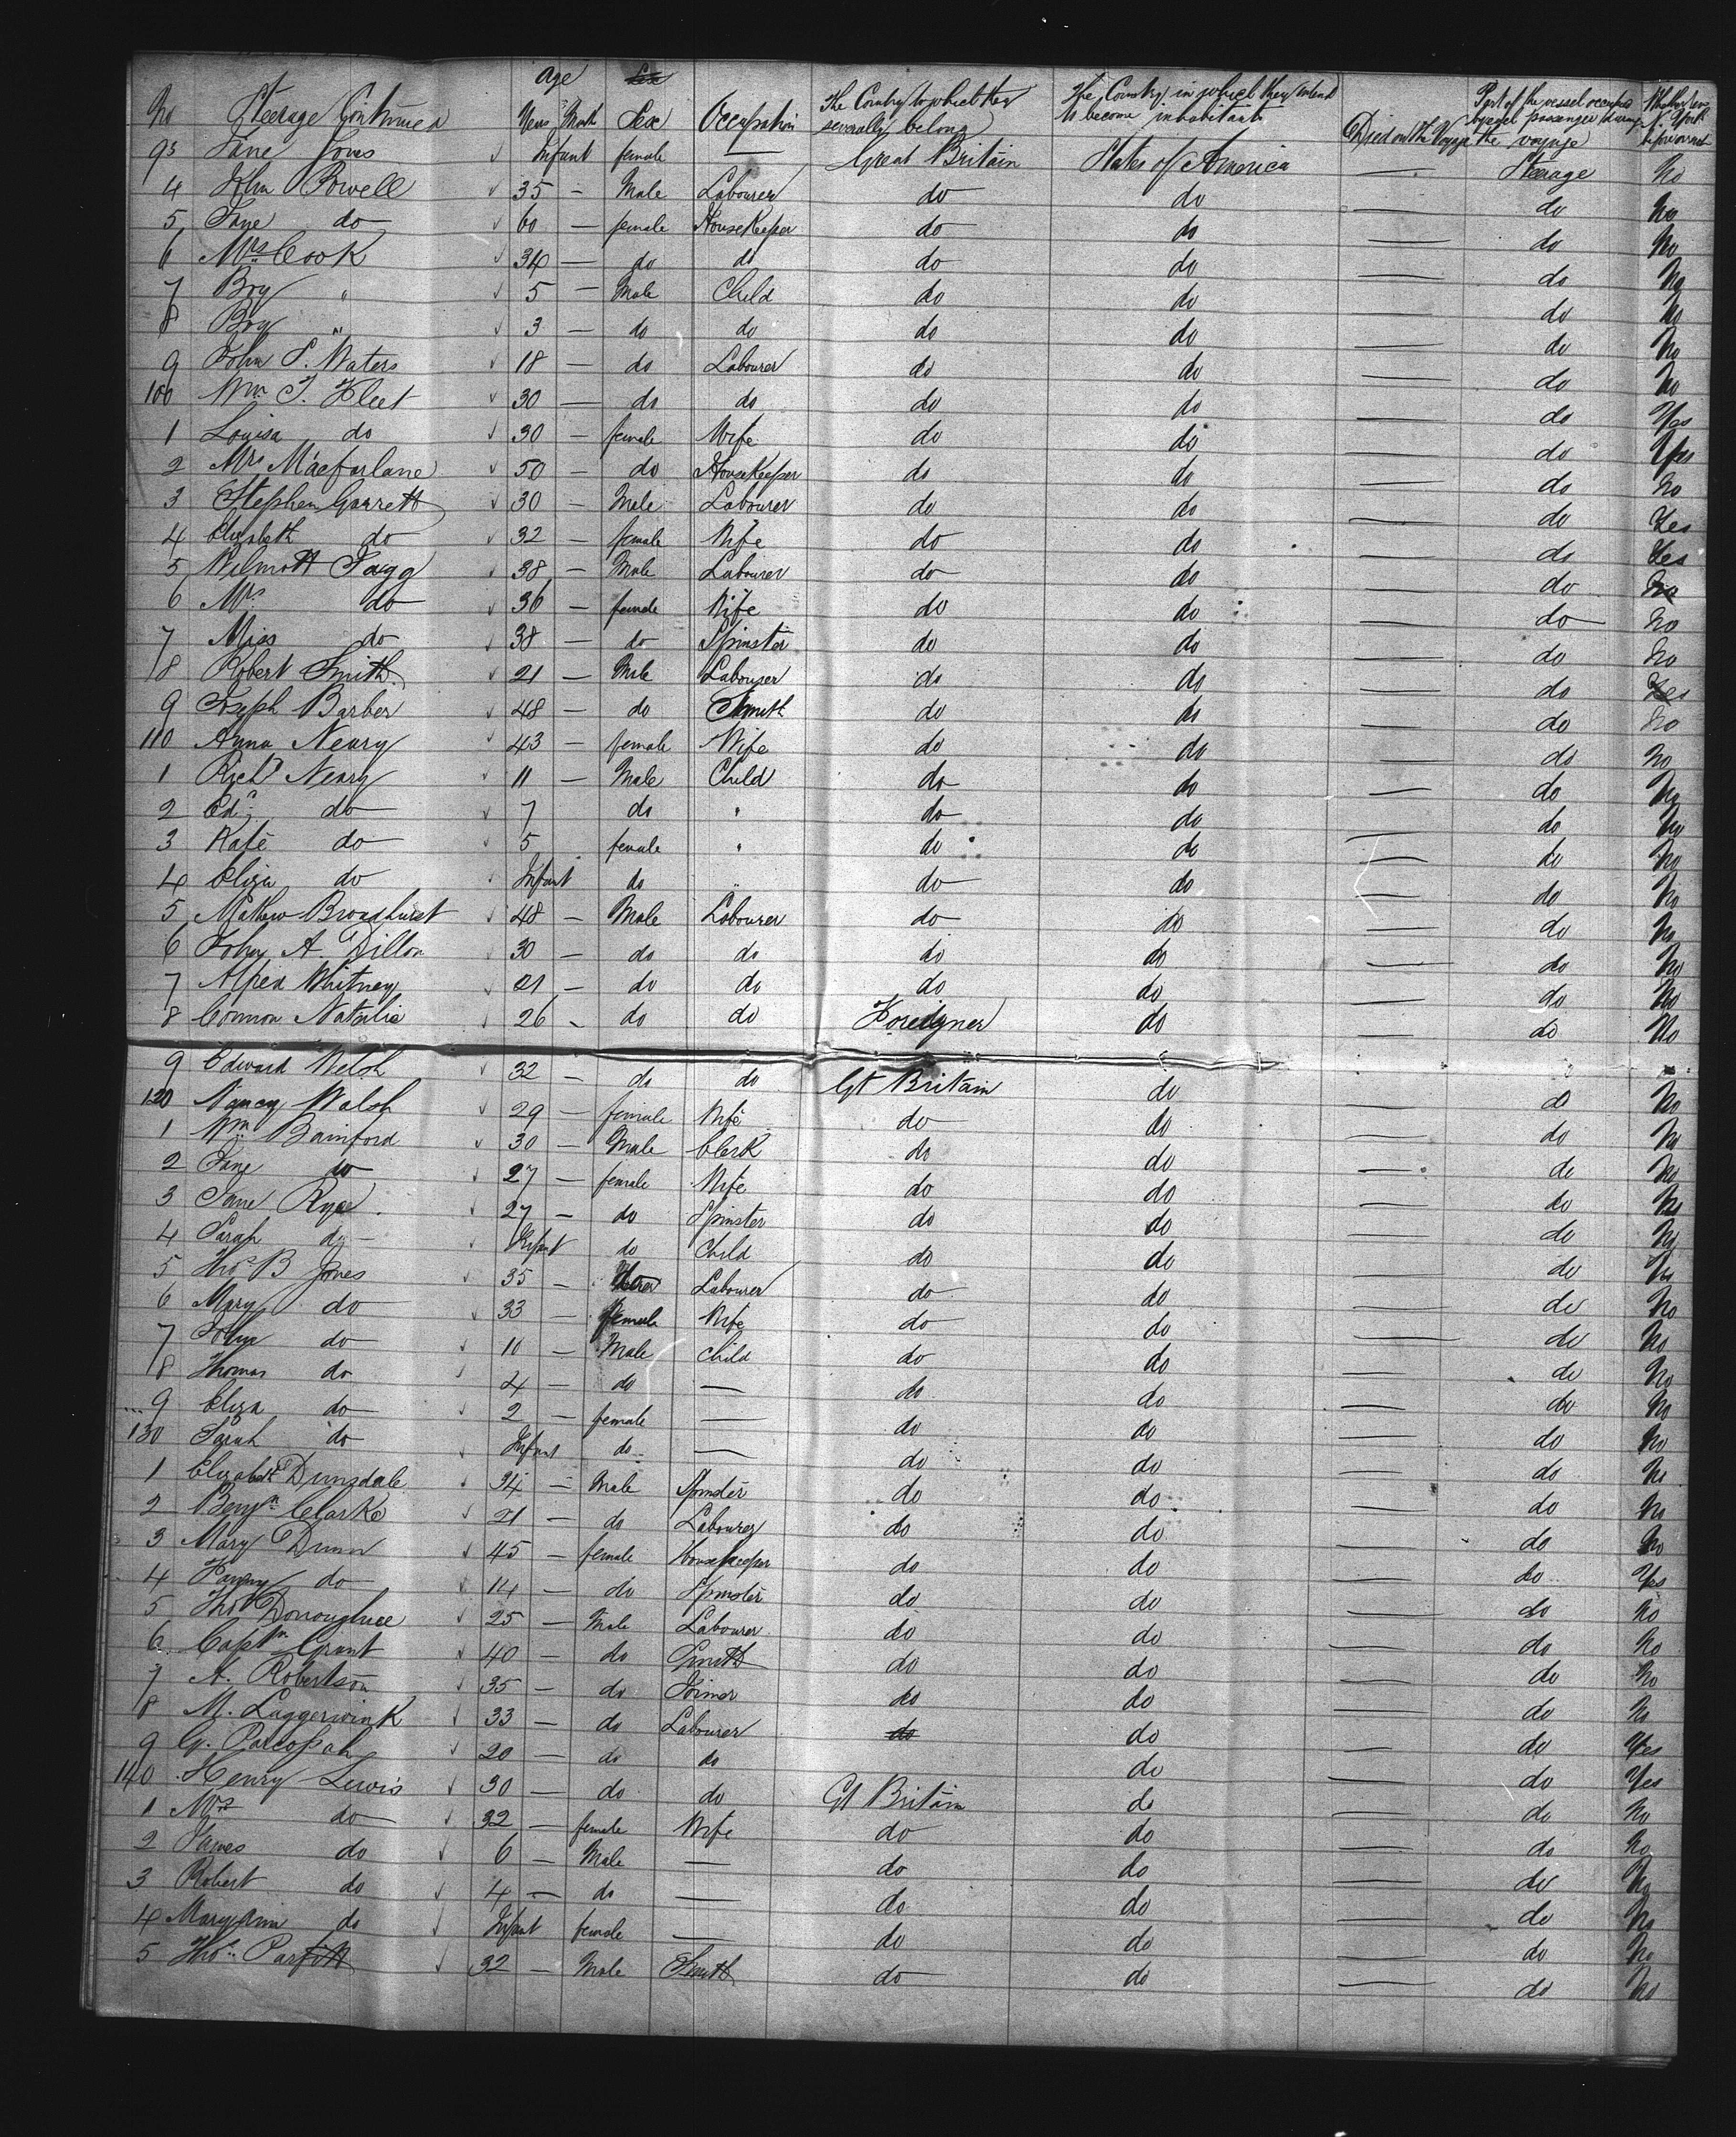 Age Sex
No Steerage Continued Years Month Sex Occupation The Country to which they severally belong The Country in which they intend to become inhabitants Died on the Voyage Part of the vessel occupied by each passenger during the voyage
93 Jane Jones Infant female — Great Britain States of America — Steerage No
4 John Powell 35 — Male Labourer do do — do No
5 Jane do 60 — female HouseKeeper do do — do No
6 Mrs Cook 34 — do do do do — do No
7 Boy " 5 — Male Child do do — do No
8 Boy " 3 — do do do do — do No
9 John S. Waters 18 — do Labourer do do — do No
100 Wm T. Fleet 30 — do do do do — do Yes
1 Louisa do 30 — female Wife do do — do Yes
2 Mrs Macfarlane 50 — do HouseKeeper do do — do No
3 Stephen Garrett 30 — Male Labourer do do — do Yes
4 Elizabeth do 32 — female Wife do do — do Yes
5 Wilmott Fagg 38 — Male Labourer do do — do No
6 Mrs do 36 — female Wife do do — do No
7 Miss do 38 — do Spinster do do — do No
8 Robert Smith 21 — Male Labourer do do — do Yes
9 Joseph Barber 48 — do Smith do do — do No
110 Anna Neary 43 — female Wife do do — do No
1 Richd Neary 11 — Male Child do do — do No
2 Ed. do 7 do " do do — do No
3 Kate do 5 female " do do — do No
4 Eliza do Infant do " do do — do No
5 Mathew Broadhurst 48 — Male Labourer do do — do No
6 John A. Dillon 30 — do do do do — do No
7 Alfred Whitney 21 — do do do do — do No
8 Connon Natalie 26 — do do Foreigner do — do No
9 Edward Welsh 32 — do do Gt Britain do — do No
120 Nancy Walsh 29 — female Wife do do — do No
1 Wm Bamford 30 — Male Clerk do do — do No
2 Jane do 27 — female Wife do do — do No
3 Jane Rye 27 — do Spinster do do — do No
4 Sarah do Infant do Child do do — do No
5 Thos B Jones 35 — Labourer do do — do No
6 Mary do 33 — female Wife do do — do No
7 John do 10 — Male Child do do — do No
8 Thomas do 4 — do — do do — do No
9 Eliza do 2 — female — do do — do No
130 Sarah do Infant do — do do — do No
1 Elizabeth Dunsdale 34 — Male Spinster do do — do No
2 Benjn Clarke 21 — do Labourer do do — do No
3 Mary Dunn 45 — female Housekeeper do do — do Yes
4 Fanny do 14 — do Spinster do do — do No
5 Thos Donoughue 25 — Male Labourer do do — do No
6 Captn Grant 40 — do Smith do do — do No
7 A. Robertson 35 — do Joiner do do — do No
8 M. Laggerwink 33 — do Labourer do do — do Yes
9 G. 20 — do do do — do Yes
140 Henry Lewis 30 — do do Gt Britain do — do No
1 Mrs do 32 — female Wife do do — do No
2 James do 6 — Male — do do — do No
3 Robert do 4 — do — do do — do No
4 Mary Ann do Infant female — do do — do No
5 Thos Parfitt 32 — Male Smith do do — do No